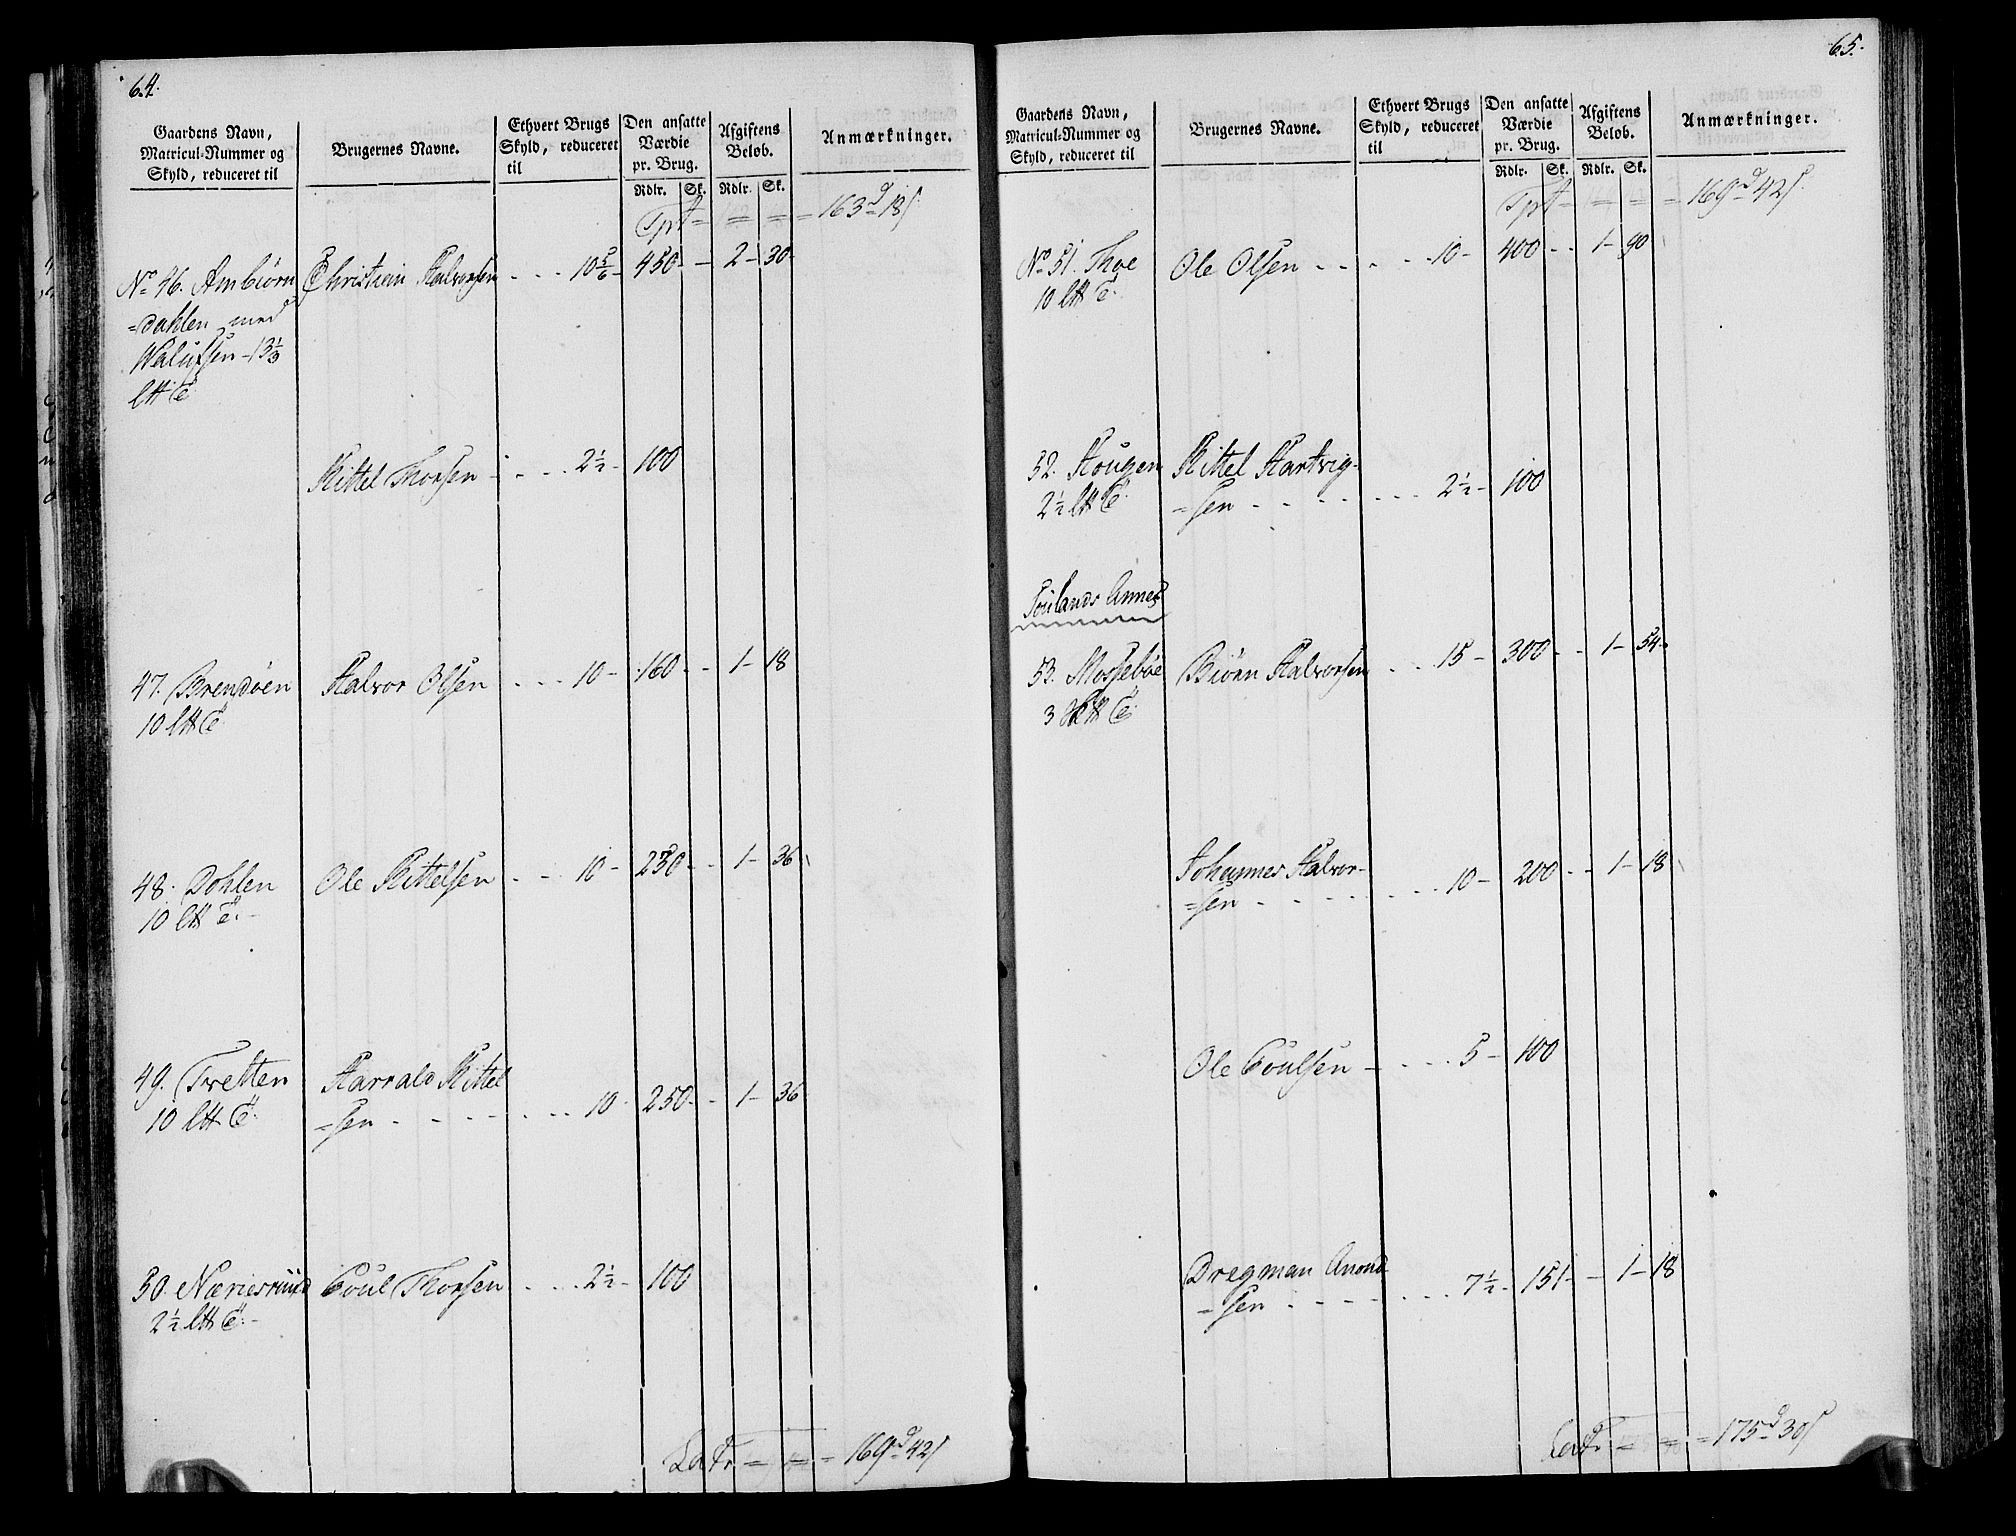 64.
Gaardens Navn,
Matricul-Nummer og
Skyld, reduceret til
Brugernes Navne.
Ethvert Brugs
Skyld, reduceret
til
Den ansatte
Værdie
pr. Brug.
Rdlr. Sk.
Afgiftens
Beløb.
Rdlr. Sk.
Anmærkninger.
Tpt = = = = 163 d 18 s
No 46. Ambiørn Christian Halvorsen - - - 10 5/6 - 450 - - 2 - 30 -
=dahlen med
- 13 1/3
Kittel Thorsen - - - - 2 1/2 - 100
47. Brendøen Halvor Olsen - - - 10 - 160 - - 1 - 18
10
48. Dohlen Ole Kittelsen - - - 10 - 250 - - 1 - 36
10
49. Tvetten Harrald Kittel
10 =sen - - - - - - - 10 - 250 - - 1 - 36
50. Poul Thorsen - - - 2 1/2 - 100
2 1/2
= = = 169 d 42 s
65.
Gaardens Navn,
Matricul-Nummer og
Skyld, reduceret til
Brugernes Navne.
Ethvert Brugs
Skyld, reduceret
til
Den ansatte
Værdie
pr. Brug.
Rdlr. Sk.
Afgiftens
Beløb.
Rdlr. Sk.
Anmærkninger.
Tpt = = = = 169 d 42 s
No 51. Thoe Ole Olsen - - - - - 10 - 400 - - 1 - 90
10
52. Hougen Kittel Hartvig-
2 1/2 =sen - - - - - - - 2 1/2 - 100
Annex
53. Mossebøe Biørn Halvorsen - - - 15 - 300 - - 1 - 54 -
3
Johannes Halvor-
=sen - - - - - - - 10 - 200 - - 1 - 18
Ole Poulsen - - - - 5 - 100
Dregman Anond-
=sen - - - - - - - 7 1/2 - 151 - - 1 - 18
= = = 175 d 30 s